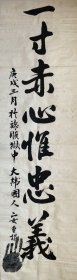 一寸赤心惟忠義
庚戌三月 於旅順獄中 大韓國人 安重根